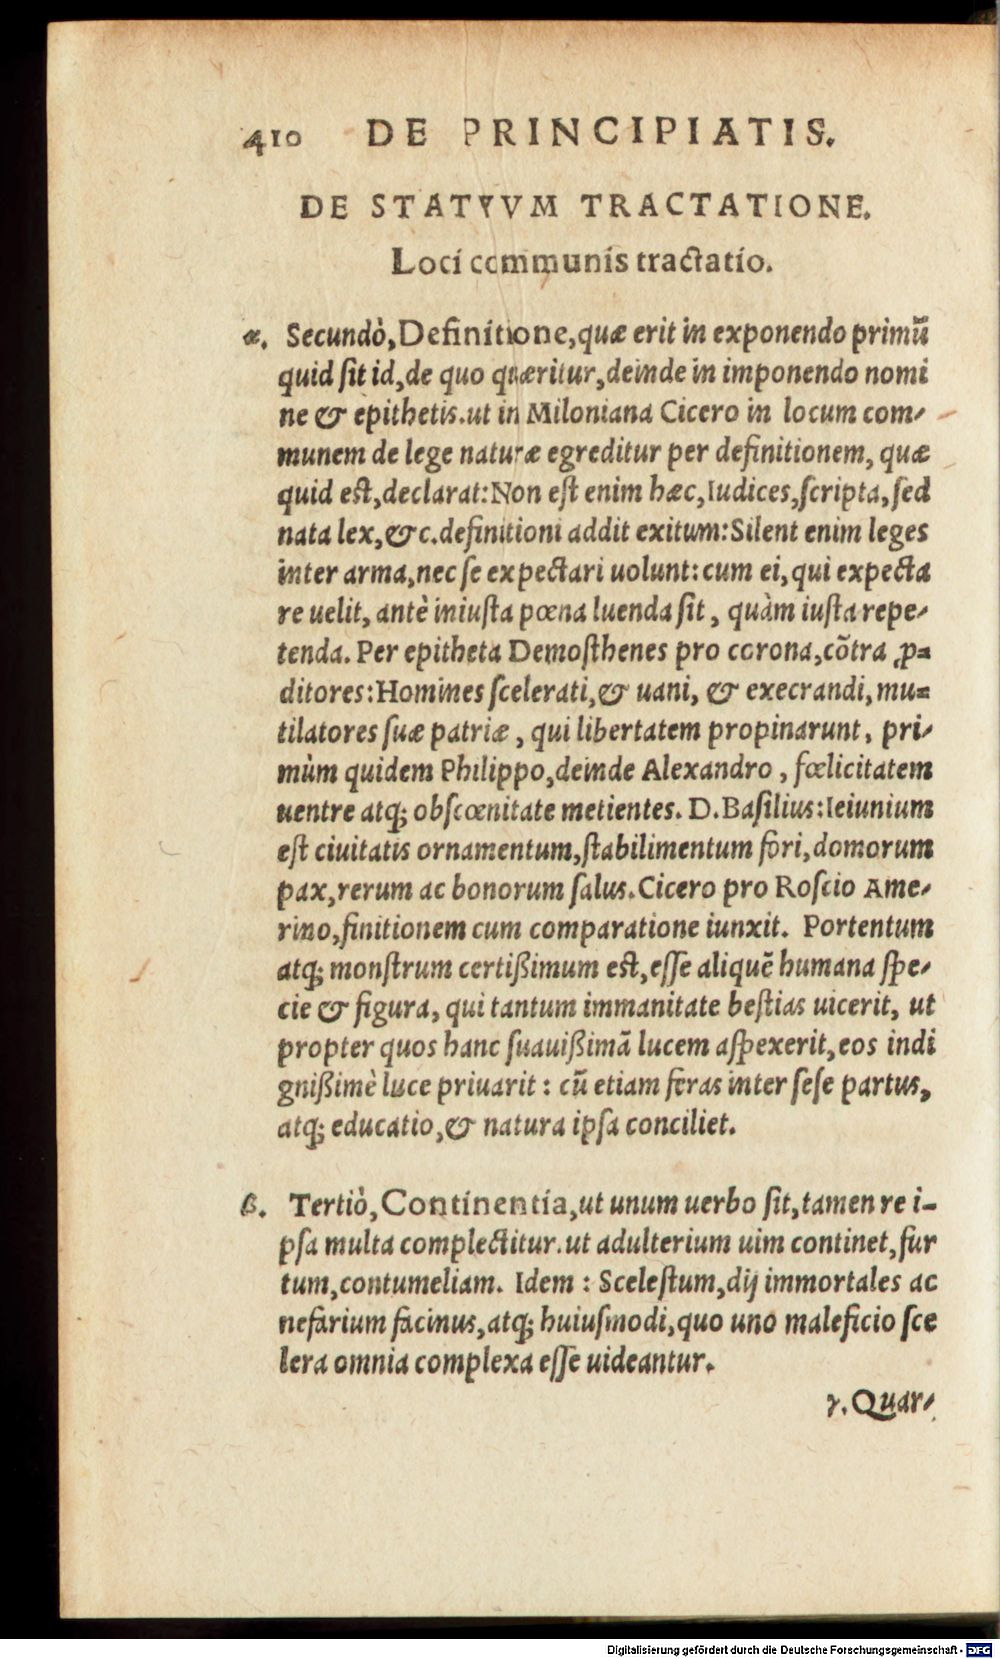 410 DE PRINCIPIATIS.
DE STATVVM TRACTATIONE.
Loci communis tractatio.
α. Secundò, Definitione, quæ erit in exponendo primũ
quid ſit id, de quo quæritur, deinde in imponendo nomi
ne & epithetis. ut in Miloniana Cicero in locum com-
munem de lege naturæ egreditur per definitionem, quæ
quid eſt, declarat: Non eſt enim hæc, Iudices, ſcripta, ſed
nata lex, & c. definitioni addit exitum: Silent enim leges
inter arma, nec ſe expectari uolunt: cum ei, qui expecta
re uelit, antè iniuſta pœna luenda ſit, quàm iuſta repe-
tenda. Per epitheta Demoſthenes pro corona, cõtra ꝓ=
ditores: Homines ſcelerati, & uani, & execrandi, mu=
tilatores ſuæ patriæ, qui libertatem propinarunt, pri-
mùm quidem Philippo, deinde Alexandro, fœlicitatem
uentre atq; obſcœnitate metientes. D. Baſilius: Ieiunium
eſt ciuitatis ornamentum, ſtabilimentum fori, domorum
pax, rerum ac bonorum ſalus. Cicero pro Roſcio Ame-
rino, finitionem cum comparatione iunxit. Portentum
atq; monſtrum certißimum eſt, eſſe aliquẽ humana ſpe-
cie & figura, qui tantum immanitate beſtias uicerit, ut
propter quos hanc ſuauißimã lucem aſpexerit, eos indi
gnißimè luce priuarit: cũ etiam feras inter ſeſe partus,
atq; educatio, & natura ipſa conciliet.
β. Tertiò, Continentia, ut unum uerbo ſit, tamen re i-
pſa multa complectitur. ut adulterium uim continet, fur
tum, contumeliam. Idem: Sceleſtum, dij immortales ac
nefarium facinus, atq; huiuſmodi, quo uno maleficio ſce
lera omnia complexa eſſe uideantur.
γ. Quar-
Digitalisierung gefördert durch die Deutsche Forschungsgemeinschaft - DFG